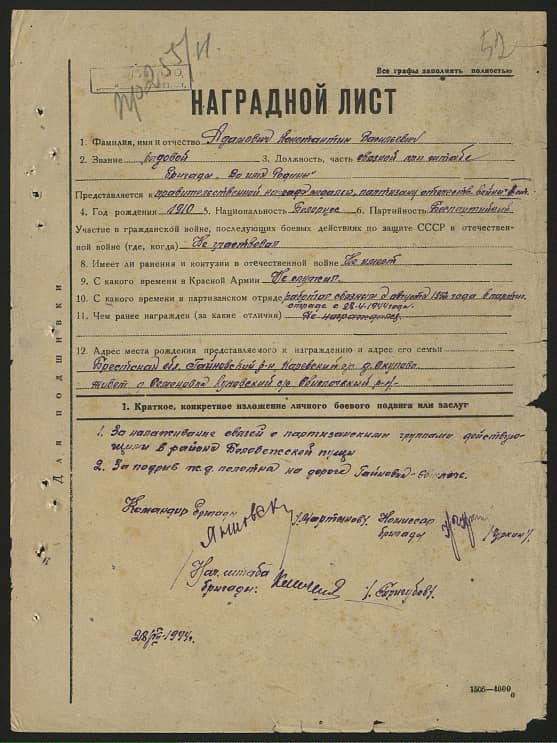 52
Все графы заполнять полностью
НАГРАДНОЙ ЛИСТ
1. Фамилия, имя и отчество Адамович Константин Васильевич
2. Звание рядовой 3. Должность, часть связной при штабе
бригады "Во имя Родины"
Представляется к правительственной награде медаль, партизану отечеств. войны II ст.
4. Год рождения 1910 5. Национальность Белорус 6. Партийность Беспартийный
Участие в гражданской войне, последующих боевых действиях по защите СССР и отечествен-
ной войне (где, когда) Не участвовал
8. Имеет ли ранения и контузии в отечественной войне Не имеет
9. С какого времени в Красной Армии Не служил
10. С какого времени в партизанском отряде работал связным с августа года в партиз.
отряде с 28.4.1944 года.
11. Чем ранее награжден (за какие отличия) Не награждался
12. Адрес места рождения представляемого к награждению и адрес его семьи
Брестская обл. Гайновский р-н Наревский с/с д.
живет д. Семеновка с/с р-н
Для подшивки
1. Краткое, конкретное изложение личного боевого подвига или заслуг
1. За налаживание связей с партизанскими группами действую-
щими в районе Беловежской пущи
2. За подрыв ж.д. полотна на дороге Гайновка
Командир бригады Комиссар
бригады
Нач. штаба
бригады:
28/VII-1944г.
1506—4000